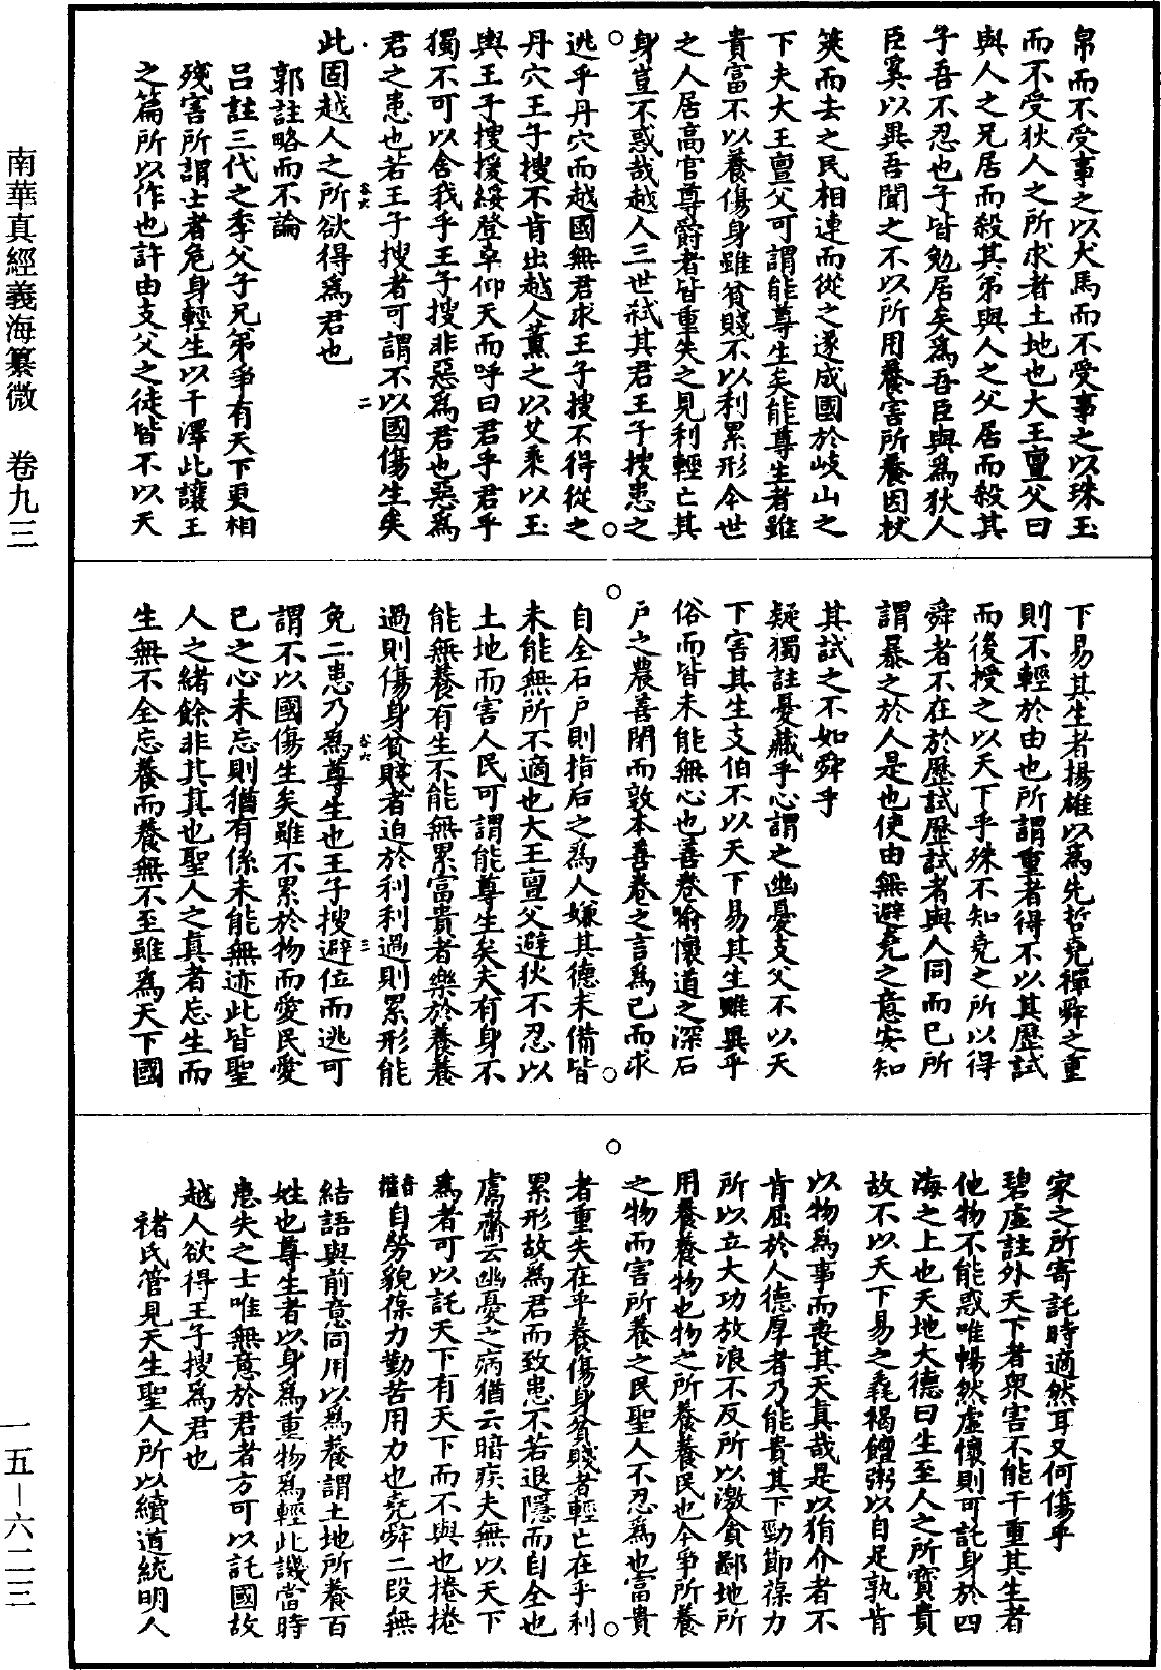 帛而不受事之以犬馬而不受事之以珠玉
而不受狄人之所求者土地也大王亶父曰
與人之兄居而殺其弟與人之父居而殺其
子吾不忍也子皆勉居矣為吾臣與為狄人
臣奚以異吾聞之不以所用養害所養因杖
筴而去之民相連而從之遂成國於岐山之
下夫大王亶父可謂能尊生矣能尊生者雖
貴富不以養傷身雖貧賤不以利累形今世
之人居高官尊爵者皆重失之見利輕亡其
身豈不惑哉越人三世弒其君王子搜患之
逃乎丹穴而越國無君求王子搜不得從之
丹穴王子搜不肯出越人薰之以艾乘以玉
輿王子搜援綏登車仰天而呼曰君乎君乎
獨不可以舍我乎王子搜非惡為君也惡為
君之患也若王子搜者可謂不以國傷生矣
此固越人之所欲得為君也
郭註略而不論
呂註三代之季父子兄弟爭有天下更相
殘害所謂士者危身輕生以干澤此讓王
之篇所以作也許由支父之徒皆不以天
下易其生者揚雄以為先哲堯禪舜之重
則不輕於由也所謂重者得不以其歷試
而後授之以天下乎殊不知堯之所以得
舜者不在於歷試歷試者與人同而已所
謂暴之於人是也使由無避堯之意安知
其試之不如舜乎
疑獨註憂藏乎心謂之幽憂支父不以天
下害其生支伯不以天下易其生雖異乎
俗而皆未能無心也善卷喻懷道之深石
戶之農善閉而敦本善卷之言為己而求
自全石戶則指后之為人嫌其德未備皆
未能無所不適也大王亶父避狄不忍以
土地而害人民可謂能尊生矣夫有身不
能無養有生不能無累富貴者樂於養養
過則傷身貧賤者迫於利利過則累形能
免二患乃為尊生也王子搜避位而逃可
謂不以國傷生矣雖不累於物而愛民愛
己之心未忘則猶有係未能無迹此皆聖
人之緒餘非其真也聖人之真者忘生而
生無不全忘養而養無不至雖為天下國
家之所寄託時適然耳又何傷乎
碧虛註外天下者衆害不能干重其生者
他物不能惑唯暢然虛懷則可託身於四
海之上也天地大德曰生至人之所寶貴
故不以天下易之毳褐饘粥以自足孰肯
以物為事而喪其天真哉是以狷介者不
肯屈於人德厚者乃能貴其下勁節葆力
所以立大功放浪不反所以激貪鄙地所
用養養物也物之所養養民也今爭所養
之物而害所養之民聖人不忍為也富貴
者重失在乎養傷身貧賤者輕亡在乎利
累形故為君而致患不若退隱而自全也
鬳齋云幽憂之病猶云暗疾夫無以天下
為者可以託天下有天下而不與也捲捲
音權自勞貌葆力勤苦用力也堯舜二段無
結語與前意同用以為養謂土地所養百
姓也尊生者以身為重物為輕此譏當時
患失之士唯無意於君者方可以託國故
越人欲得王子搜為君也
褚氏管見天生聖人所以續道統明人
南華真經義海纂微 卷九三
一五－六二三